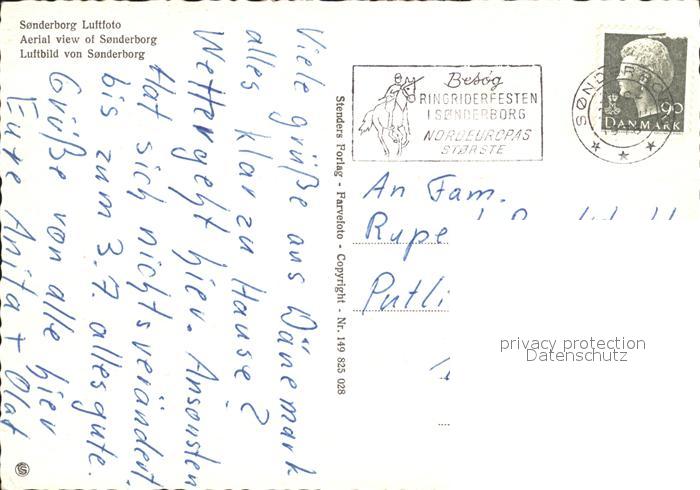 Sønderborg Luftfoto
Aerial view of Sønderborg
Luftbild von Sønderborg
Viele grüße aus Dänemark
alles klar zu Hause?
Wetter geht hier. Ansonsten
Hat sich nichts verändert.
bis zum 3.7. alles gute.
Grüße von alle hier
Eure Anita + Olaf
Stenders Forlag - Farvefoto - Copyright - Nr. 149 825 028
Besøg
RINGRIDERFESTEN
I SØNDERBORG
NORDEUROPAS
STØRSTE
SØNDERBORG
90
DANMARK
An Fam.
Rupe
Putli
privacy protection
Datenschutz